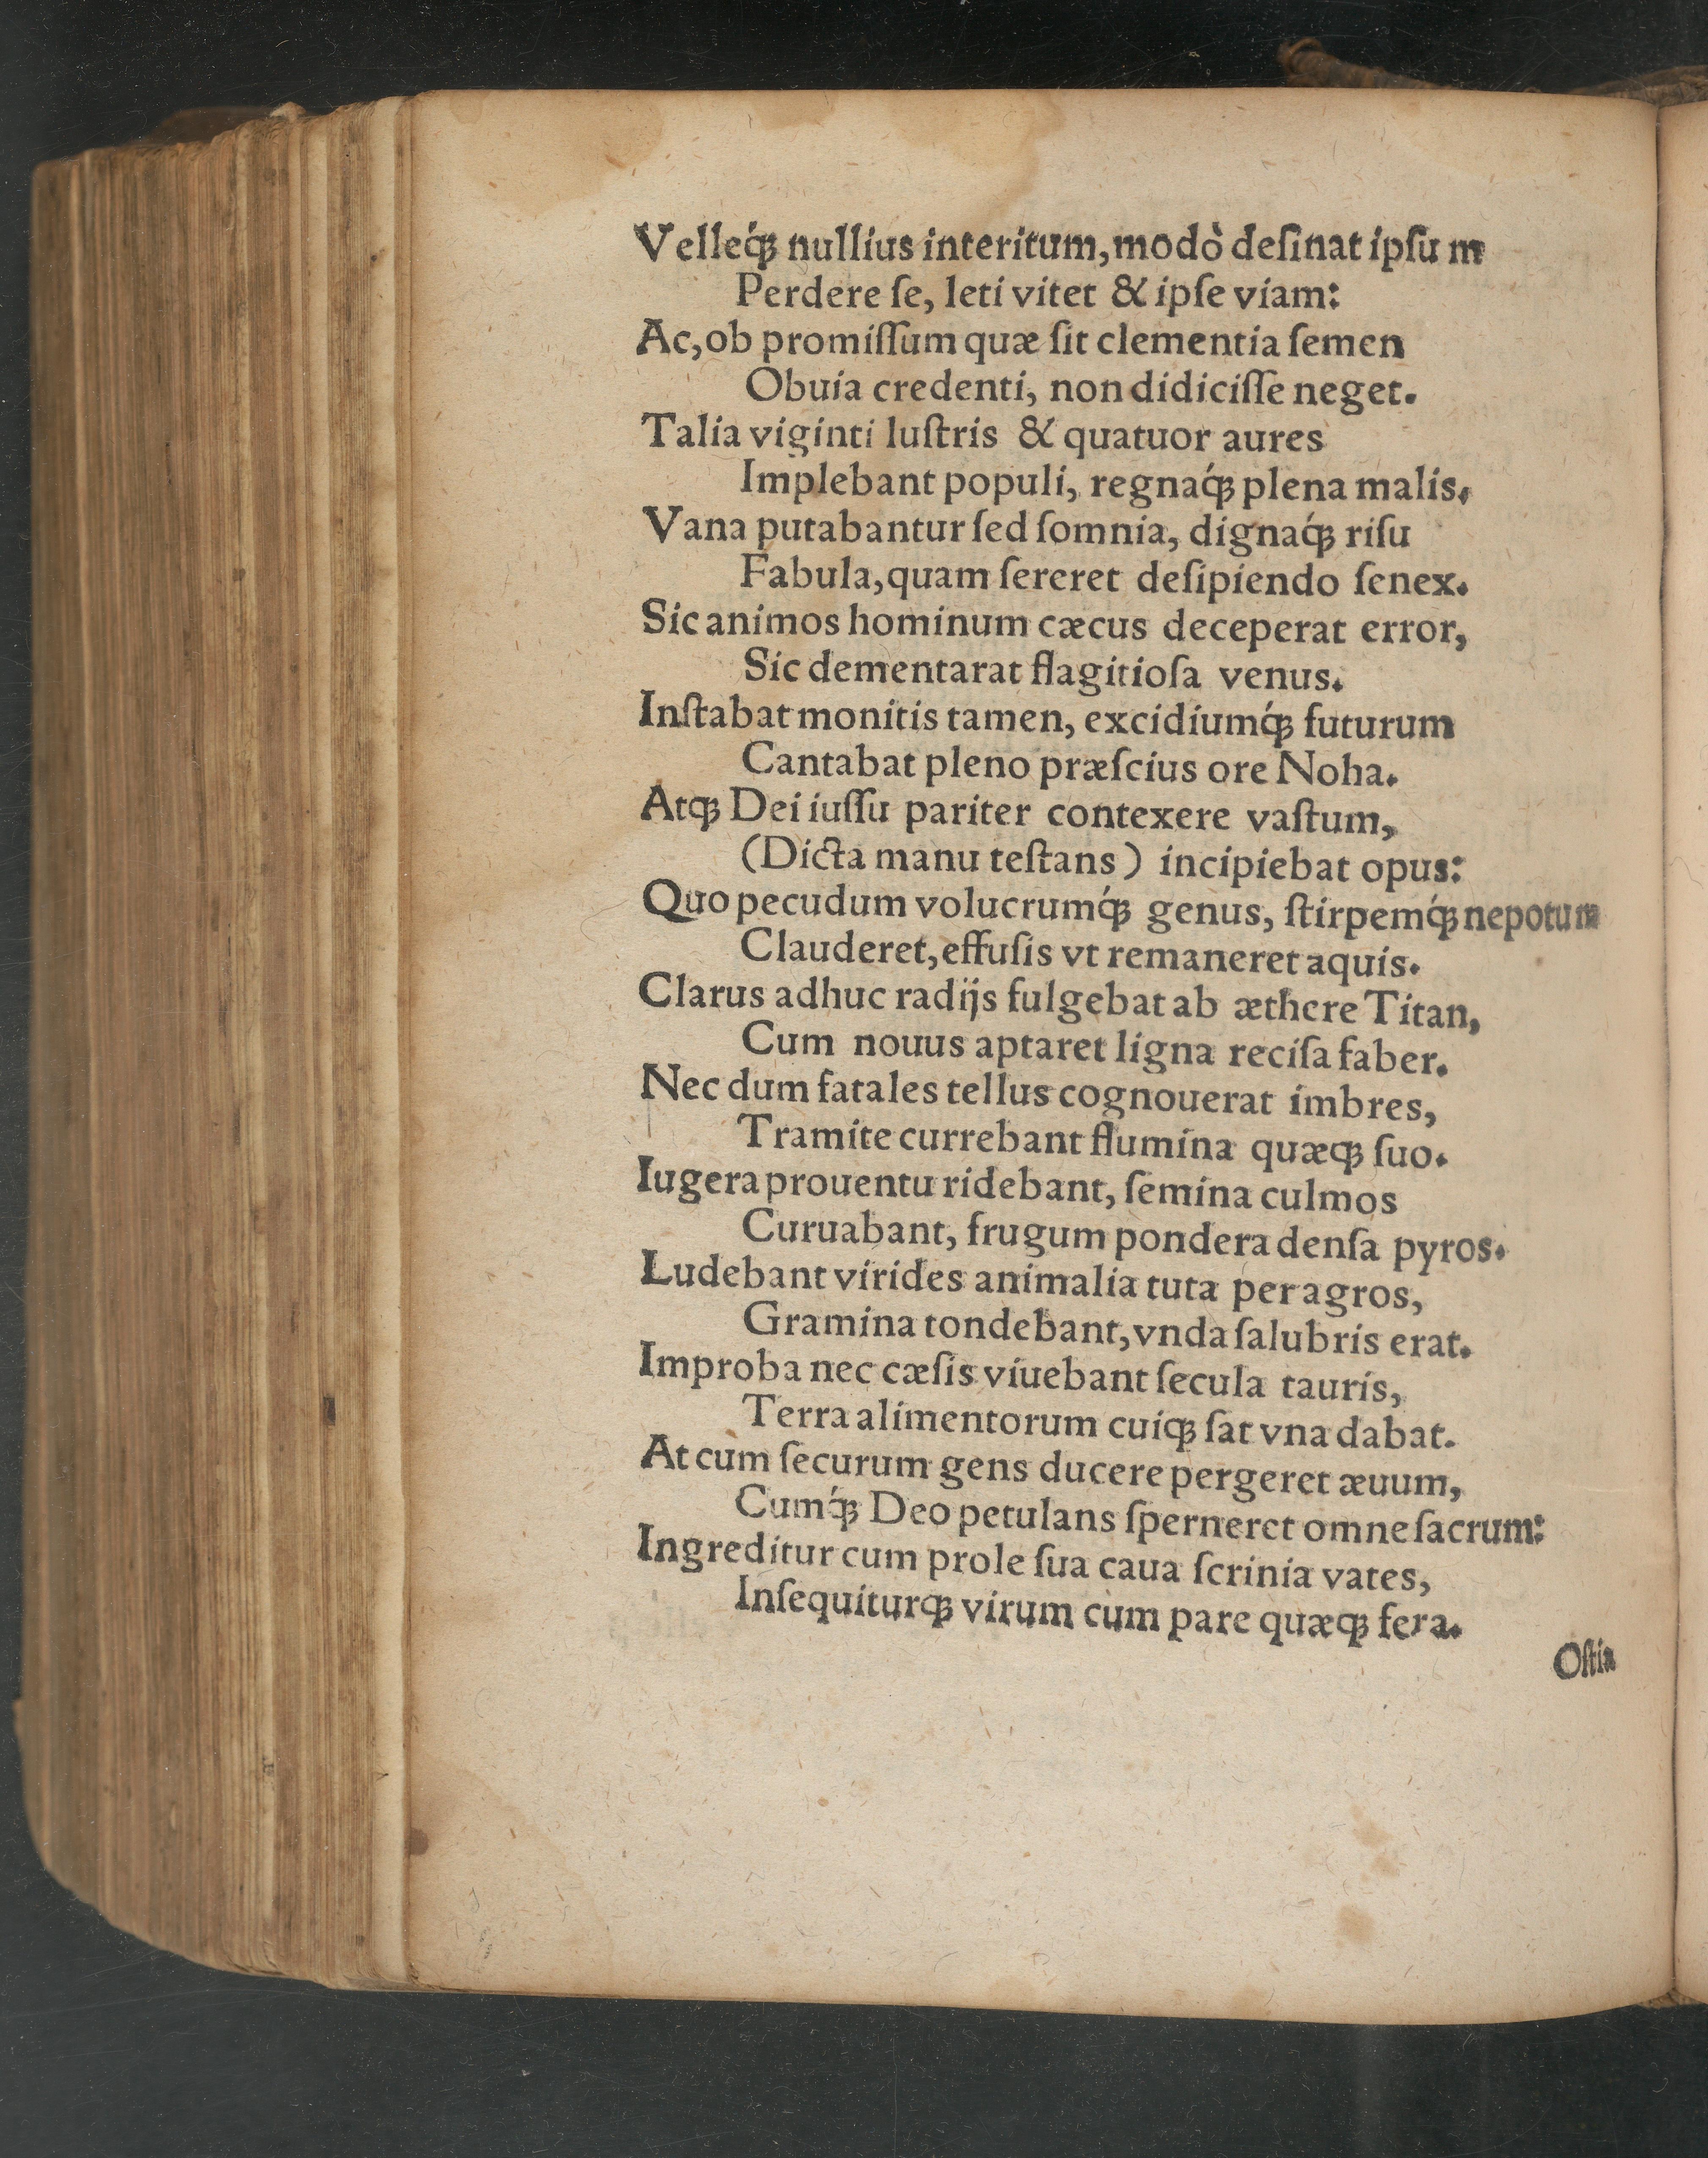 Velleq́ꝫ nullius interitum, modò deſinat ipſu m
Perdere ſe, leti vitet & ipſe viam:
Ac, ob promiſſum quæ ſit clementia ſemen
Obuia credenti, non didiciſſe neget.
Talia viginti luſtris & quatuor aures
Implebant populi, regnaq́ꝫ plena malis.
Vana putabantur ſed ſomnia, dignaq́ꝫ riſu
Fabula, quam ſereret deſipiendo ſenex.
Sic animos hominum cæcus deceperat error,
Sic dementarat flagitioſa venus.
Inſtabat monitis tamen, excidiumq́ꝫ futurum
Cantabat pleno præſcius ore Noha.
Atqꝫ Dei iuſſu pariter contexere vaſtum,
(Dicta manu teſtans) incipiebat opus:
Quo pecudum volucrumq́ꝫ genus, ſtirpemq́ꝫ nepotum
Clauderet, effuſis vt remaneret aquis.
Clarus adhuc radijs fulgebat ab æthere Titan,
Cum nouus aptaret ligna reciſa faber.
Nec dum fatales tellus cognouerat imbres,
Tramite currebant flumina quæqꝫ ſuo.
Iugera prouentu ridebant, ſemina culmos
Curuabant, frugum pondera denſa pyros.
Ludebant virides animalia tuta per agros,
Gramina tondebant, vnda ſalubris erat.
Improba nec cæſis viuebant ſecula tauris,
Terra alimentorum cuiqꝫ ſat vna dabat.
At cum ſecurum gens ducere pergeret æuum,
Cumq́ꝫ Deo petulans ſperneret omne ſacrum:
Ingreditur cum prole ſua caua ſcrinia vates,
Inſequiturqꝫ virum cum pare quæqꝫ fera.
Oſtia